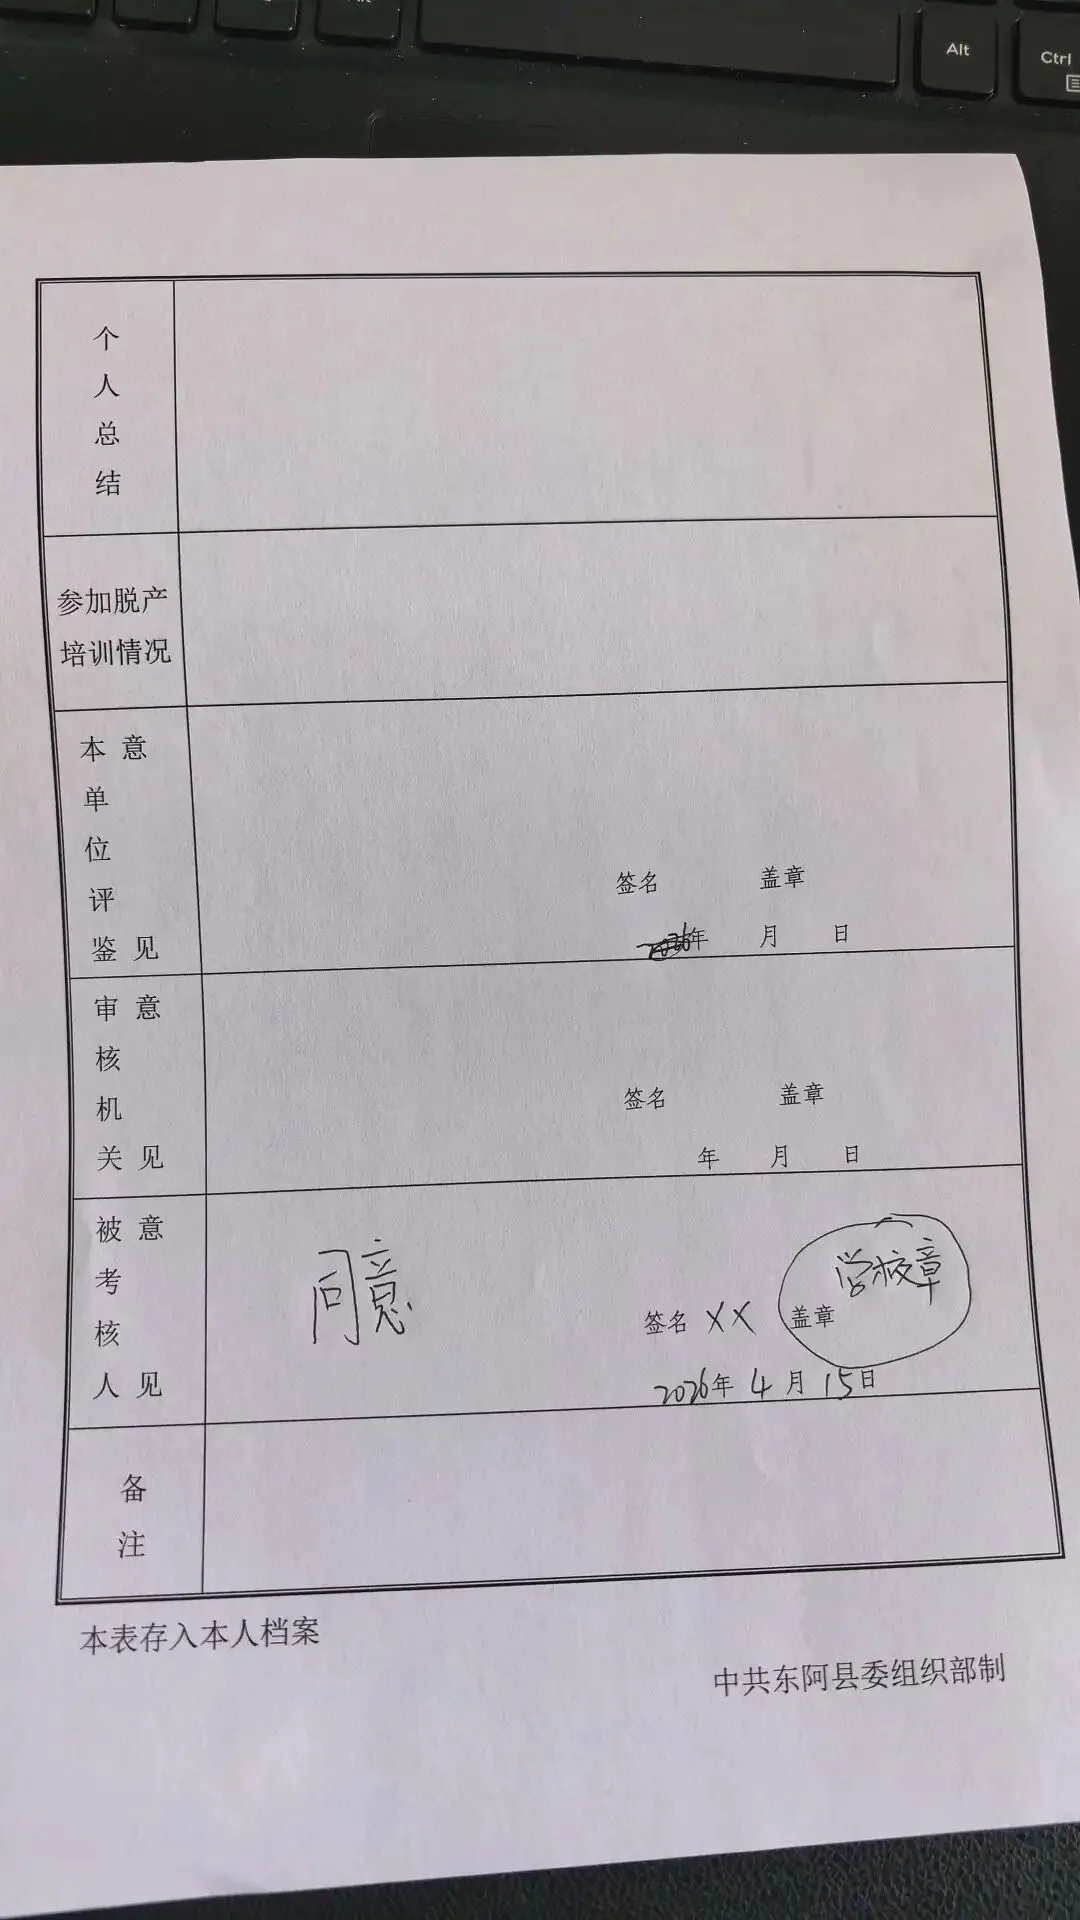 Alt
Ctrl
个
人
总
结
参加脱产
培训情况
本 意
单
位
评
鉴 见
签名 盖章
年 月 日
审 意
核
机
关 见
签名 盖章
年 月 日
被 意
考
核
人 见
同意
学校章
签名 XX 盖章
2026年 4 月 15日
备
注
本表存入本人档案
中共东阿县委组织部制